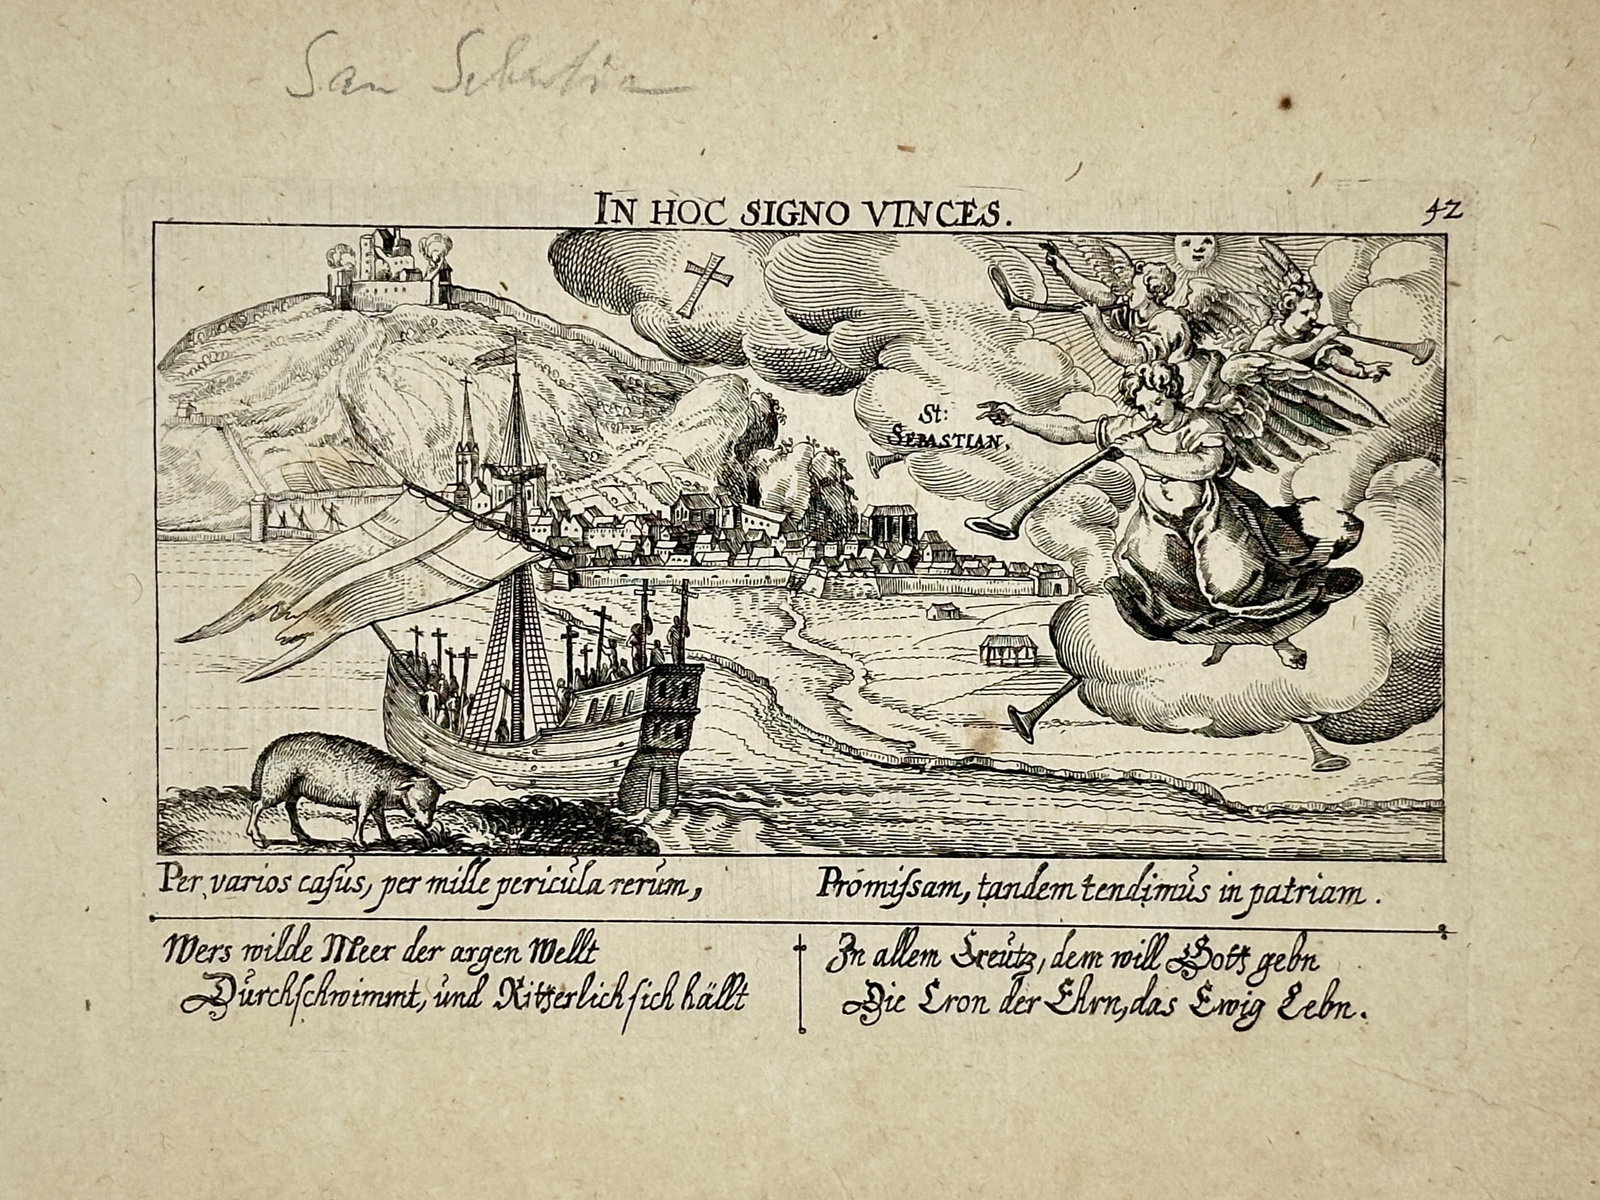 San Sebastian
IN HOC SIGNO VINCES.
42
St:
SEBASTIAN.
Per varios casus, per mille pericula rerum,
Promissam, tandem tendimus in patriam.
Wers wilde Meer der argen Wellt
Durchschwimmt, und Ritterlich sich hällt
In allem Creutz, dem will Gott gebn
Die Cron der Ehrn, das Ewig Lebn.